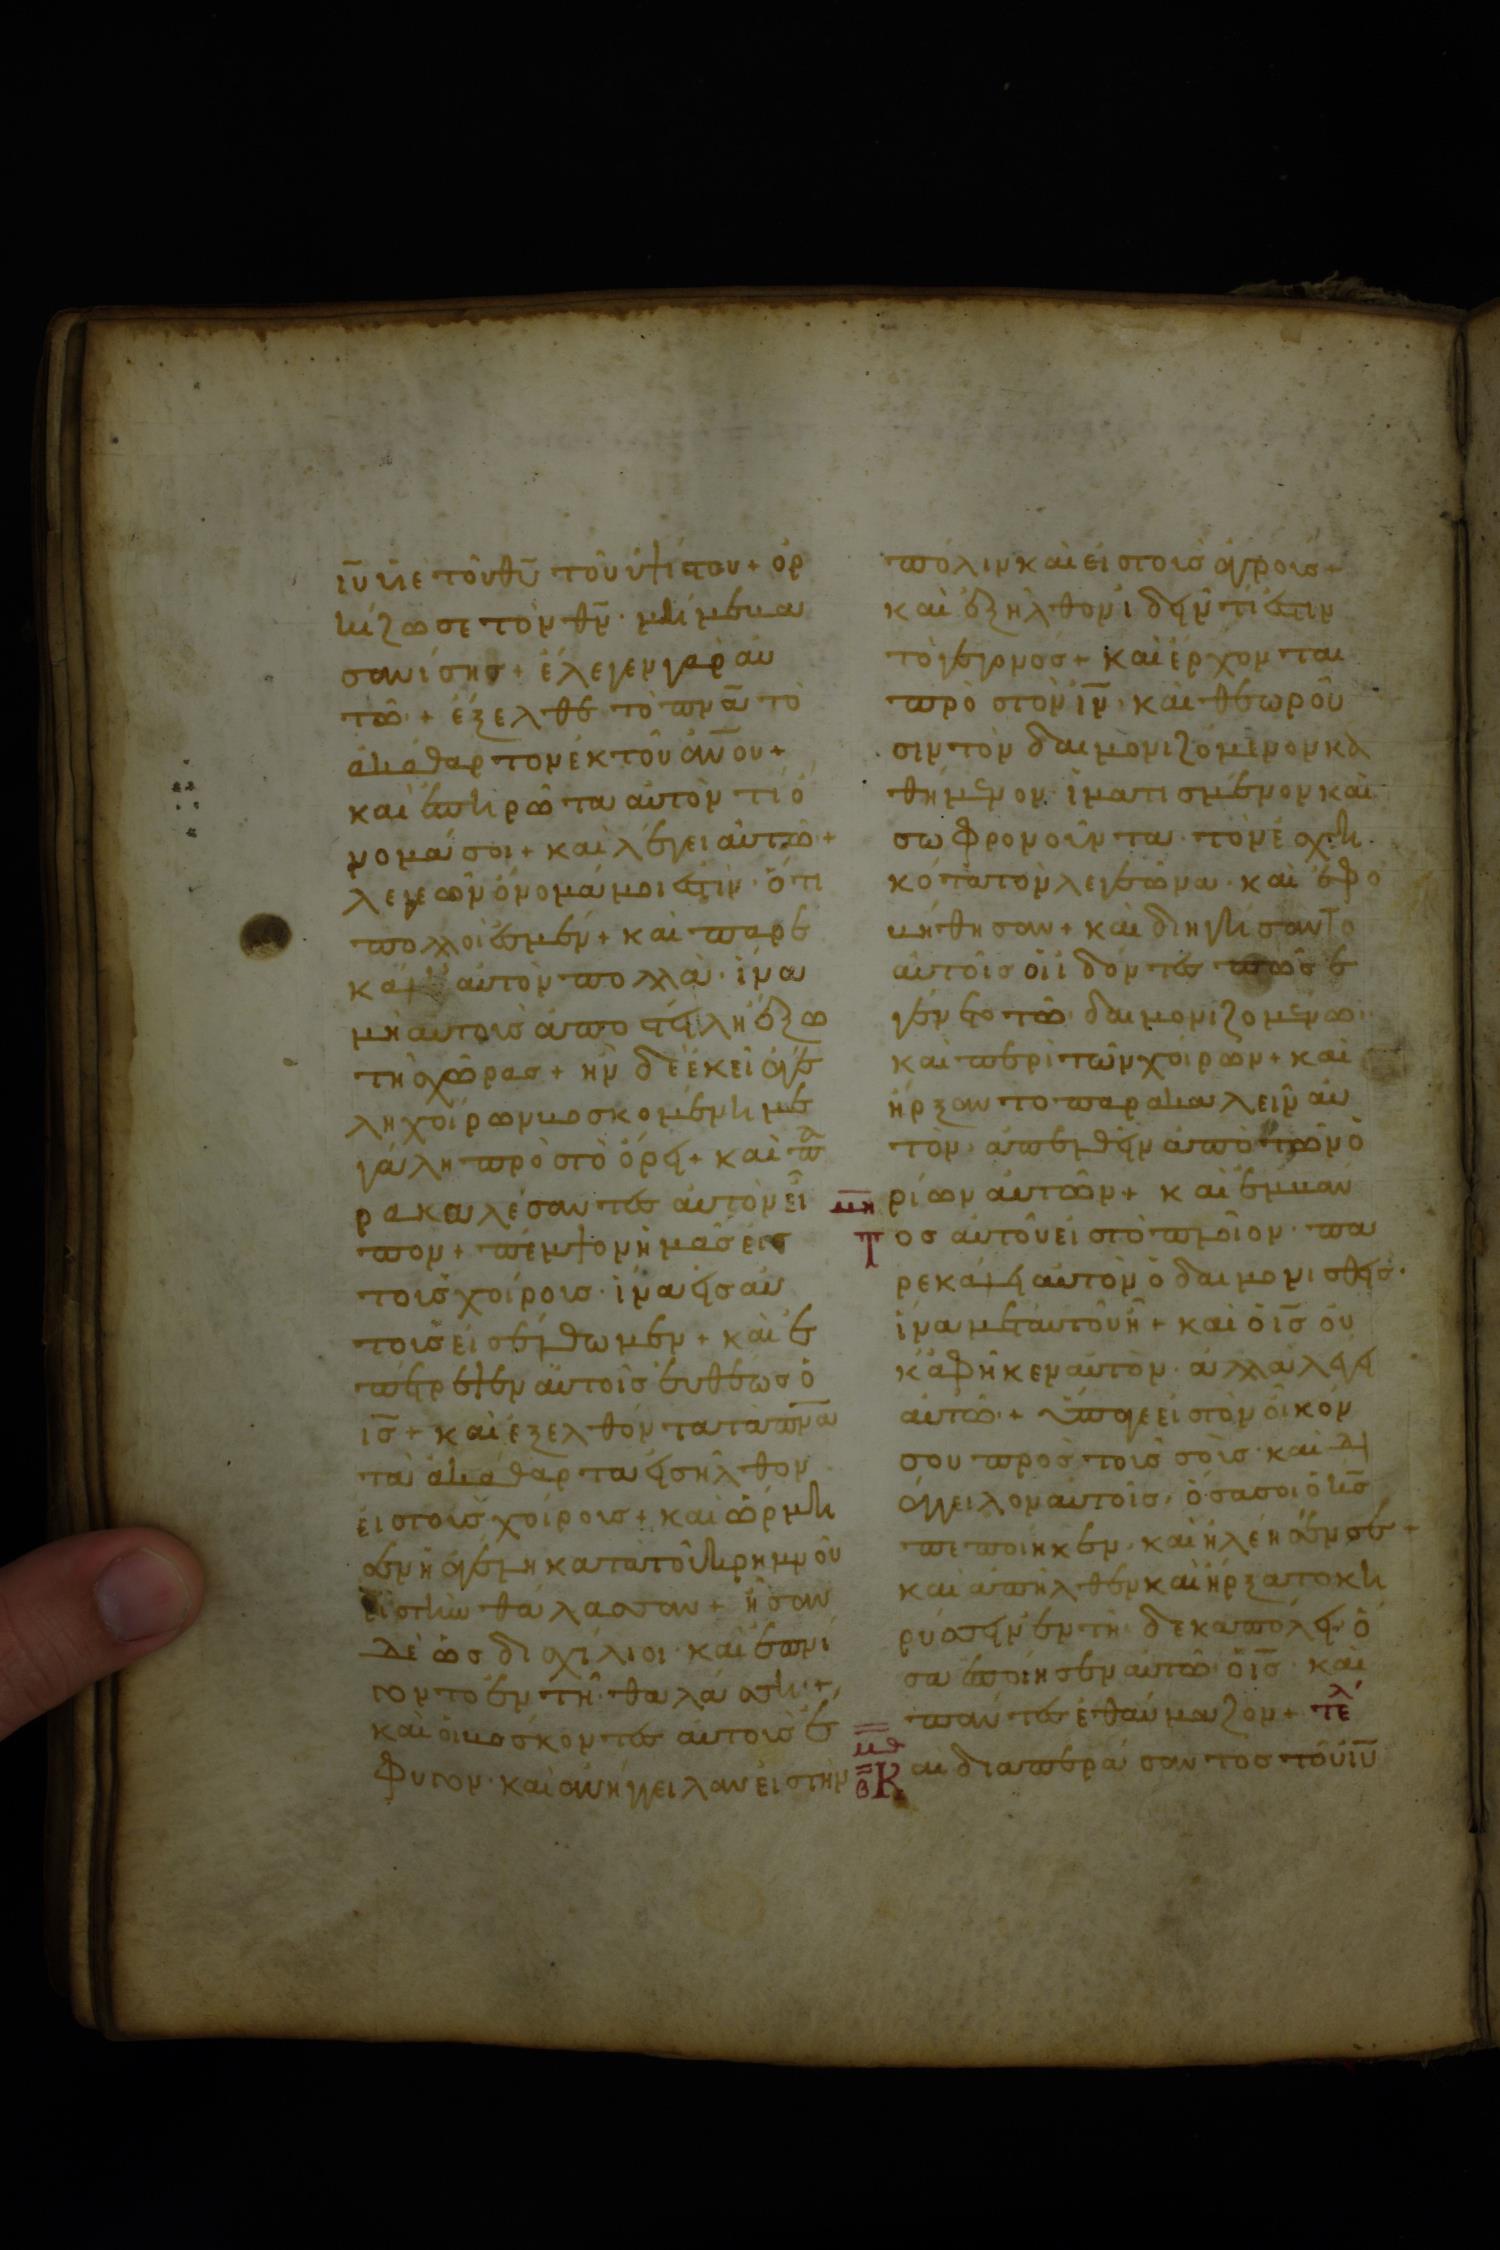 ιῡ υἱὲ τοῦ θῡ τοῦ ὑψίστου + ὁρ
κίζω σε τὸν θν̄ · μή με βα
σανίσης + ἔλεγεν γαρ αυ
τῶ · + ἔξελθε τὸ πνᾱ τὸ
ἀκάθαρτον ἐκ τοῦ ἀν̄ου +
καὶ ἐπηρώτα αὐτὸν τί ὄ
νομά σοι + καὶ λέγει αὐτῶ +
λεγεὼν ὄνομά μοι ἐστὶν · ὅτι
πολλοί ἐσμεν + καὶ παρε
κάλ αὐτὸν πολλὰ · ἵνα
μὴ αὐτοὺς ἀποστείλη ἔξω
τῆς χώρας + ἦν δὲ ἐκεῖ ἀγέ
λη χοίρων βοσκομένη με
γάλη πρὸς τὸ ὄρει + καὶ πα
ρακαλέσαντες αὐτὸν εἶ
πον + πέμψον ἡμᾶς εἰς
τοὺς χοίρους · ἵνα εἰς αὐ
τοὺς εἰσέλθωμεν + καὶ ἐ
πέτρεψεν αὐτοῖς εὐθέως ὁ
ις̄ + καὶ ἐξελθόντα τὰ πνᾱ
τὰ ἀκάθαρτα εἰσῆλθον
εἰς τοὺς χοίρους + καὶ ὥρμη
σεν ἡ ἀγέλη κατὰ τοῦ κρημνοῦ
εἰς τὴν θάλασσαν + ἦσαν
δὲ ὡς δισχίλιοι · καὶ ἐπνί
γοντο ἐν τῆ θαλάσση · +
καὶ οἱ βόσκοντες αὐτοὺς ἔ
φυγον · καὶ ἀνήγγειλαν εἰς τὴν
πόλιν καὶ εἰς τοὺς ἀγρούς +
καὶ ἐξῆλθον ἰδεῖν τί ἐστιν
τὸ γεγονός + καὶ ἔρχονται
πρὸς τὸν ιν̄ · καὶ θεωροῦ
σιν τὸν δαιμονιζόμενον κα
θήμενον · ἱματισμένον καὶ
σωφρονοῦντα · τὸν ἐσχη
κότα τὸν λεγεῶνα · καὶ ἐφο
βήθησαν + καὶ διηγήσαντο
αὐτοῖς οἱ ἰδόντες πῶς ἐ
γένετο τῶ δαιμονιζομένω ·
καὶ περὶ τῶν χοίρων + καὶ
ἤρξαντο παρακαλεῖν αὐ
τὸν · ἀπελθεῖν ἀπὸ τῶν ὁ
μη ρίων αὐτῶν + καὶ ἐμβάν
Τος αὐτοῦ εἰς τὸ πλοῖον · πα
ρεκάλει αὐτὸν ὁ δαιμονισθείς ·
ἵνα μετ αὐτοῦ ἦ + καὶ ὁ ις̄ οὐ
κ ἀφῆκεν αὐτὸν · ἀλλὰ λέγει
αὐτῶ · + ὕπαγε εἰς τὸν οἶκόν
σου πρὸς τοὺς σοὺς · καὶ ἀν
άγγειλον αὐτοῖς, ὅσα σοι ὁ κς̄
πεποίηκεν · καὶ ἠλέησέν σε +
καὶ ἀπῆλθεν καὶ ἤρξατο κη
ρύσσειν ἐν τῆ δεκαπόλει · ὅ
σα ἐποίησεν αὐτῶ ὁ ις̄ · καὶ
πάντες ἐθαύμαζον + τέλ
μθ
β Και διαπεράσαντος τοῦ ιῡ